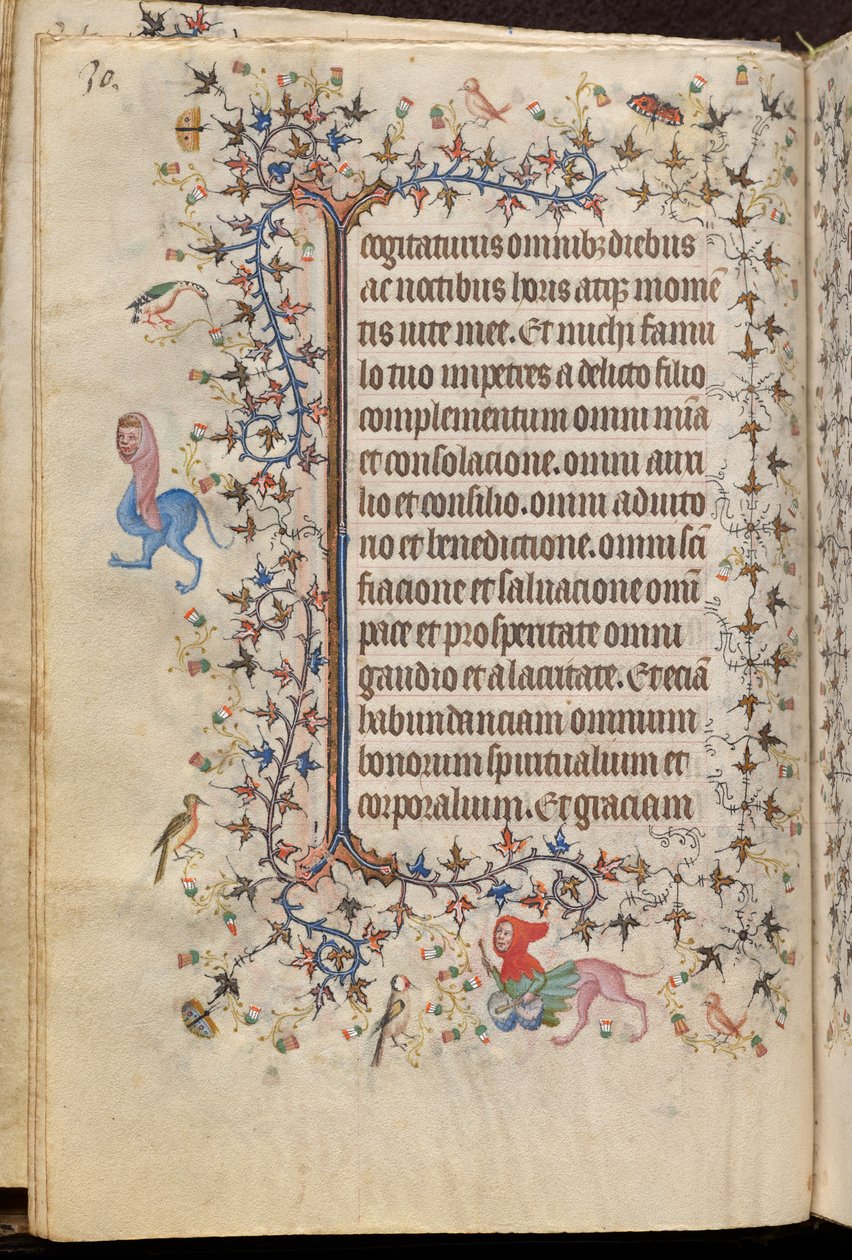 30.
cogitaturus omnibꝫ diebus
ac noctibus horis atqꝫ momē
tis uite mee. Et michi famu
lo tuo impetres a delicto filio
complementum omni mīa
et consolacione. omni auxi
lio et consilio. omni adiuto
rio et benedictione. omni scī
fiacione et saluacione omī
pace et prosperitate omni
gaudio et alacritate. Et eciā
habundanciam omnium
bonorum spiritualium et
corporalium. Et graciam